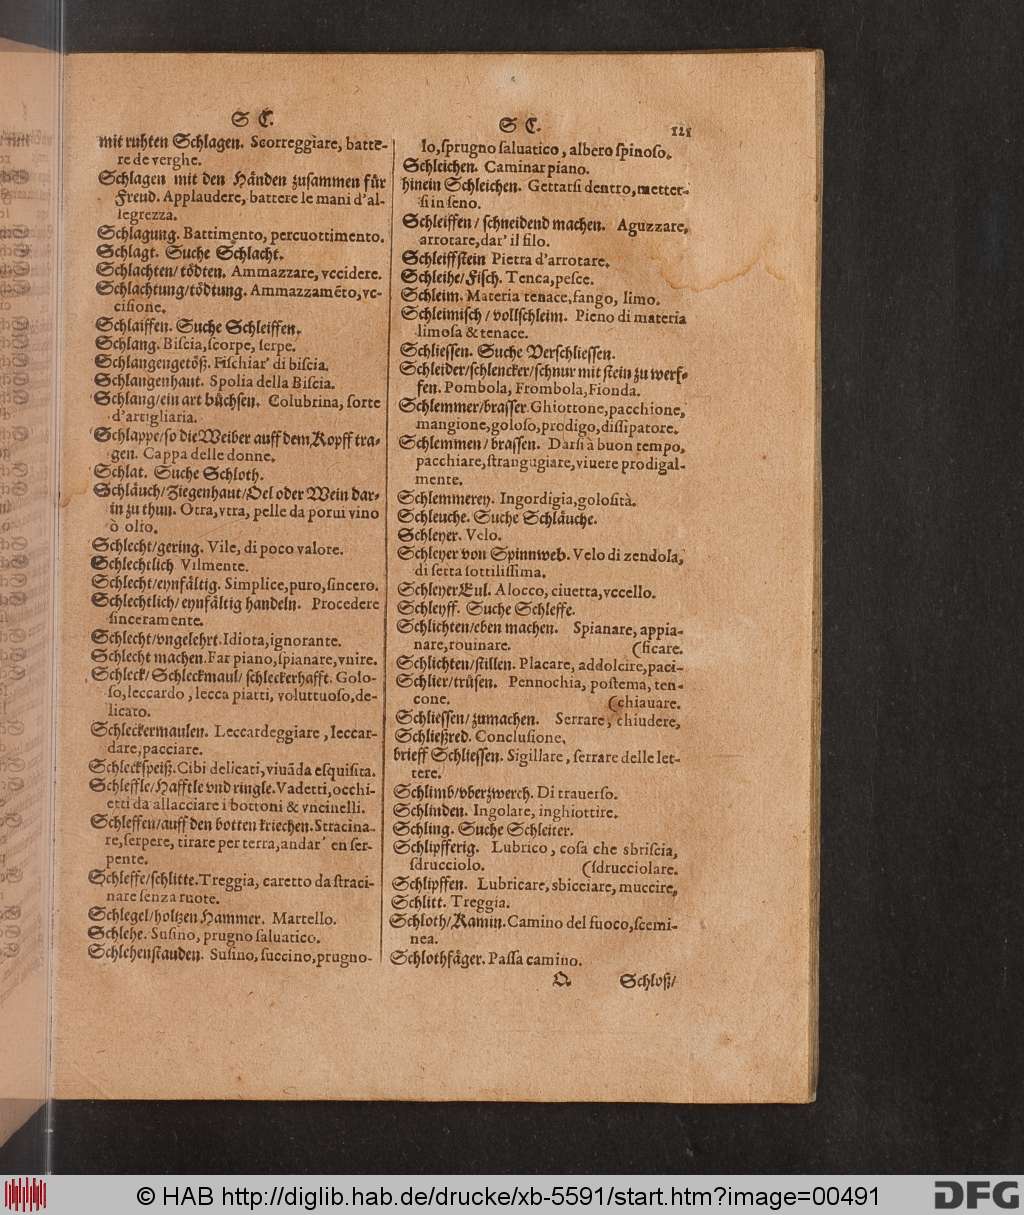 S C.
mit ruhten Schlagen. Scorreggiare, batte-
re de verghe.
Schlagen mit den Händen zusammen für
Freud. Applaudere, battere le mani d'al-
legrezza.
Schlagung. Battimento, percuottimento.
Schlagt. Suche Schlacht.
Schlachten/tödten. Ammazzare, vccidere.
Schlachtung/tödtung. Ammazzamẽto, vc-
cisione.
Schlaiffen. Suche Schleiffen.
Schlang. Biscia, scorpe, serpe.
Schlangengetöß. Fischiar' di biscia.
Schlangenhaut. Spolia della Biscia.
Schlang/ein art büchsen. Colubrina, sorte
d'artigliaria.
Schlappe/so die Weiber auff dem Kopff tra-
gen. Cappa delle donne.
Schlat. Suche Schloth.
Schläuch/Ziegenhaut/Oel oder Wein dar-
in zu thun. Otra, vtra, pelle da porui vino
ò olio.
Schlecht/gering. Vile, di poco valore.
Schlechtlich Vilmente.
Schlecht/eynfältig. Simplice, puro, sincero.
Schlechtlich/eynfältig handeln. Procedere
sinceramente.
Schlecht/vngelehrt. Idiota, ignorante.
Schlecht machen. Far piano, spianare, vnire.
Schleck/Schleckmaul/schleckerhafft. Golo-
so, leccardo, lecca piatti, voluttuoso, de-
licato.
Schleckermaulen. Leccardeggiare, leccar-
dare, pacciare.
Schleckspeiß. Cibi delicati, viuãda esquisita.
Schleffle/Hafftle vnd ringle. Vadetti, occhi-
etti da allacciare i bottoni & vncinelli.
Schleffen/auff den botten kriechen. Stracina-
re, serpere, tirare per terra, andar' en ser-
pente.
Schleffe/schlitte. Treggia, caretto da straci-
nare senza ruote.
Schlegel/holtzen Hammer. Martello.
Schlehe. Susino, prugno saluatico.
Schlehenstauden. Susino, succino, prugno-
S C. 121
lo, sprugno saluatico, albero spinoso.
Schleichen. Caminar piano.
hinein Schleichen. Gettarsi dentro, metter-
si in seno.
Schleiffen/schneidend machen. Aguzzare,
arrotare, dar' il filo.
Schleiffstein Pietra d'arrotare.
Schleihe/Fisch. Tenca, pesce.
Schleim. Materia tenace, fango, limo.
Schleimisch/vollschleim. Pieno di materia
limosa & tenace.
Schliessen. Suche Verschliessen.
Schleider/schlencker/schnur mit stein zu werf-
fen. Pombola, Frombola, Fionda.
Schlemmer/brasser. Ghiottone, pacchione,
mangione, goloso, prodigo, dissipatore.
Schlemmen/brassen. Darsi à buon tempo,
pacchiare, strangugiare, viuere prodigal-
mente.
Schlemmerey. Ingordigia, golosità.
Schleuche. Suche Schläuche.
Schleyer. Velo.
Schleyer von Spinnweb. Velo di zendola,
di setta sottilissima.
Schleyer Eul. Alocco, ciuetta, vccello.
Schleyff. Suche Schleffe.
Schlichten/eben machen. Spianare, appia-
nare, rouinare. (ficare.
Schlichten/stillen. Placare, addolcire, paci-
Schlier/trüsen. Pennochia, postema, ten-
cone. (chiauare.
Schliessen/zumachen. Serrare, chiudere,
Schließred. Conclusione.
brieff Schliessen. Sigillare, serrare delle let-
tere.
Schlimb/vberzwerch. Di trauerso.
Schlinden. Ingolare, inghiottire.
Schling. Suche Schleiter.
Schlipfferig. Lubrico, cosa che sbriscia,
sdrucciolo. (sdrucciolare.
Schlipffen. Lubricare, sbicciare, muccire,
Schlitt. Treggia.
Schloth/Kamin. Camino del fuoco, scemi-
nea.
Schlothfäger. Passa camino.
Q. Schloß/
© HAB http://diglib.hab.de/drucke/xb-5591/start.htm?image=00491
DFG